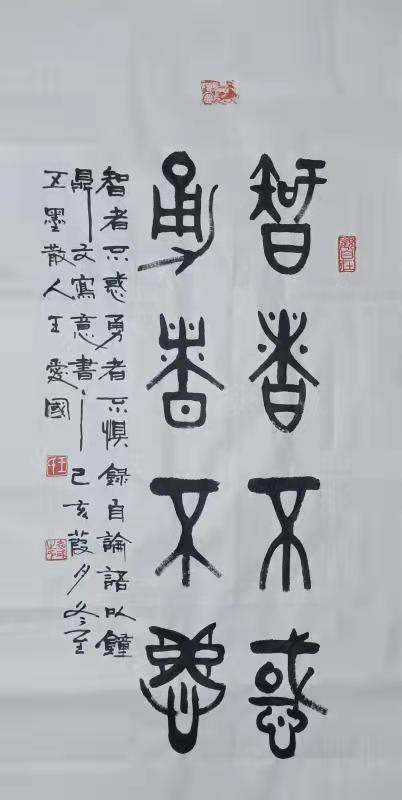 智者不惑
勇者不惧
智者不惑勇者不惧錄自論語以鐘
鼎文寫意書之己亥葭月冬至
五墨散人王愛國